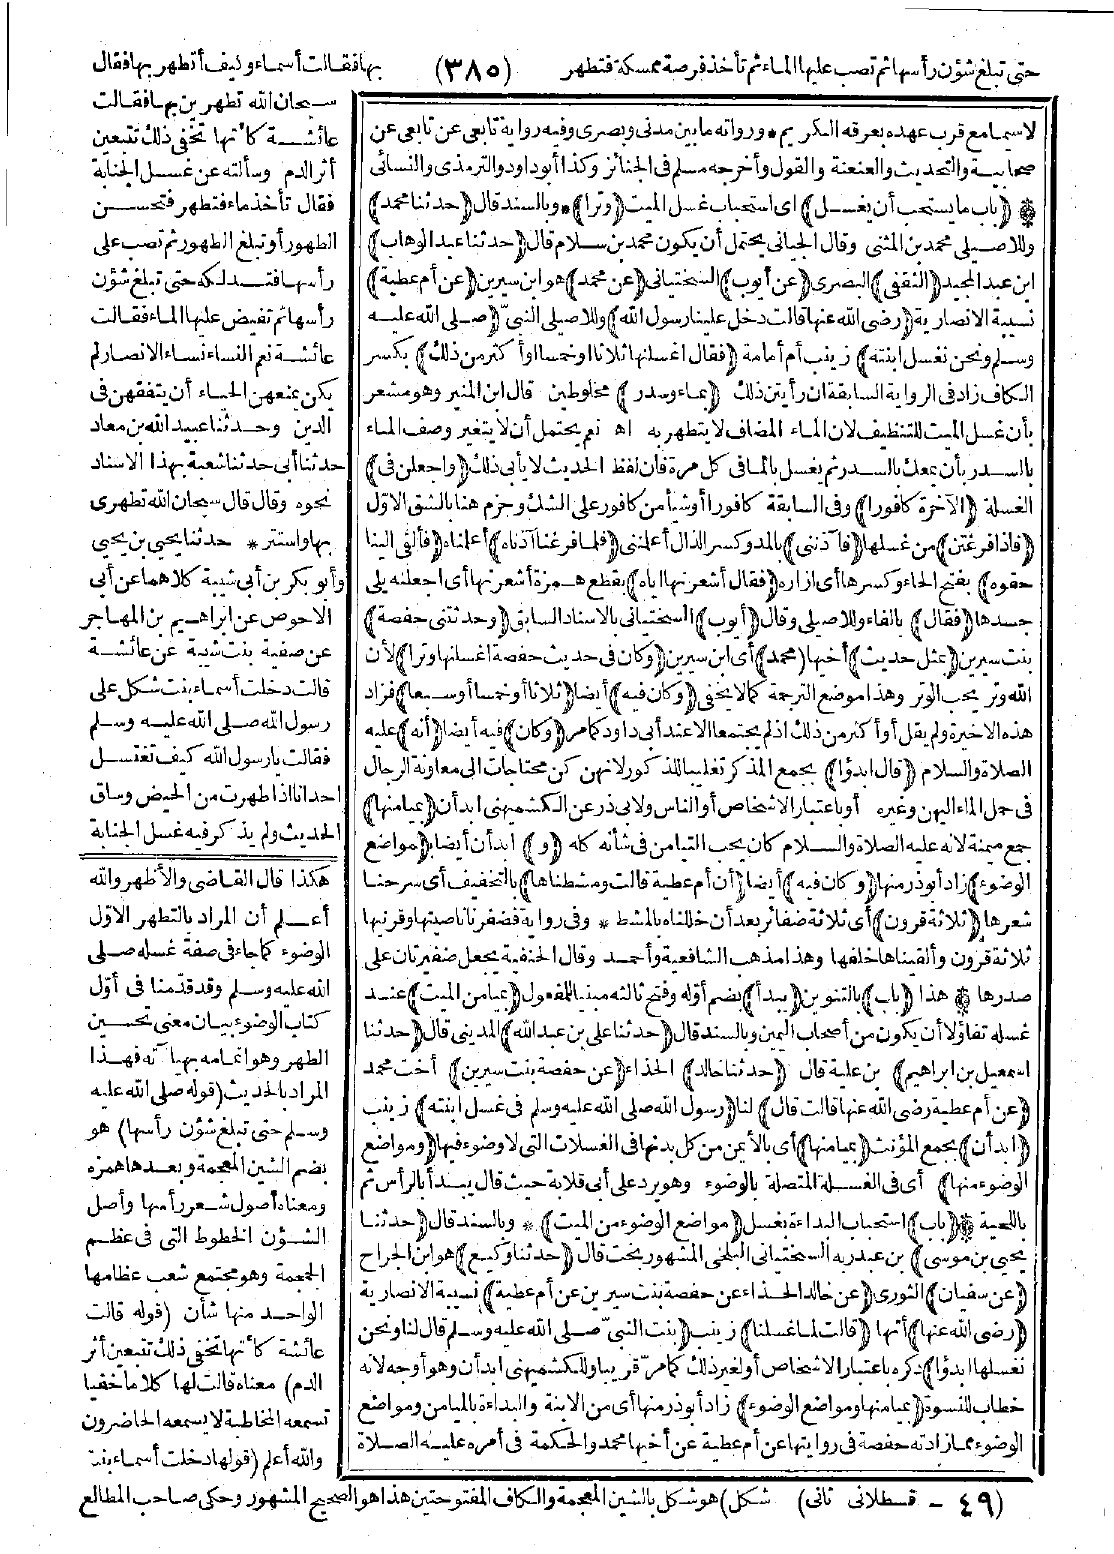 حتى تبلغ شؤن رأسها ثم تصب عليها الماء ثم تأخذ فرصة ممسكة فتطهر (٣٨٥) بها فقالت أسماء وكيف أتطهر بها فقال
لاسيما مع قرب عهده بعرقه الكريم * ورواته ما بين مدنى وبصرى وفيه رواية تابعى عن تابعى عن
صحابية والتحديث والعنعنة والقول وأخرجه مسلم فى الجنائز وكذا أبو داود والترمذى والنسائى
* (باب ما يستحب أن يغسل) اى استحباب غسل الميت (وترا) * وبالسند قال (حدثنا محمد)
وللاصيلى محمد بن المثنى وقال الجيانى يحتمل أن يكون محمد بن سلام قال (حدثنا عبد الوهاب)
ابن عبد المجيد (الثقفى) البصرى (عن أيوب) السختيانى (عن محمد) هو ابن سيرين (عن أم عطية)
نسيبة الانصارية (رضى الله عنها قالت دخل علينا رسول الله) وللاصيلى النبىّ (صلى الله عليه
وسلم ونحن نغسل ابنته) زينب أم أمامة (فقال اغسلنها ثلاثا او خمسا او أكثر من ذلك) بكسر
الكاف زاد فى الرواية السابقة ان رأيتن ذلك (بماء وسدر) مخلوطين قال ابن المنير وهو مشعر
بأن غسل الميت للتنظيف لان الماء المضاف لا يتطهر به اه نعم يحتمل أن لا يتغير وصف الماء
بالسدر بأن يمعك بالسدر ثم يغسل بالماء فى كل مرة فان لفظ الحديث لا يأبى ذلك (واجعلن فى)
الغسلة (الآخرة كافورا) وفى السابقة كافورا أو شيأ من كافور على الشك وجزم هنا بالشق الاوّل
(فاذا فرغتن) من غسلها (فآذننى) بالمد وكسر الذال أعلمننى (فلما فرغنا آذناه) أعلمناه (فألقى الينا
حقوه) بفتح الحاء وكسرها أى ازاره (فقال أشعرنها اياه) بقطع همزة أشعرنها أى اجعلنه يلى
جسدها (فقال) بالفاء وللاصيلى وقال (أيوب) السختيانى بالاسناد السابق (وحدثتنى حفصة)
بنت سيرين (بمثل حديث) أخيها (محمد) أى ابن سيرين (وكان فى حديث حفصة اغسلنها وترا) لأن
الله وتر يحب الوتر وهذا موضع الترجمة كما لا يخفى (وكان فيه) أيضا (ثلاثا أو خمسا أو سبعا) فزاد
هذه الاخيرة ولم يقل أو أكثر من ذلك اذ لم يجتمعا الا عند أبى داود كما مر (وكان) فيه أيضا (أنه) عليه
الصلاة والسلام (قال ابدؤا) بجمع المذكر تغليبا للذكور لانهن كن محتاجات الى معاونة الرجال
فى حمل الماء اليهن وغيره أو باعتبار الاشخاص أو الناس ولابى ذر عن الكشميهنى ابدأن (بميامنها)
جمع ميمنة لانه عليه الصلاة والسلام كان يحب التيامن فى شأنه كله (و) ابدأن أيضا (مواضع
الوضوء) زاد أبو ذر منها (وكان فيه) أيضا (أن أم عطية قالت ومشطناها) بالتخفيف أى سرحنا
شعرها (ثلاثة قرون) أى ثلاثة ضفائر بعد أن خللناه بالمشط * وفى رواية فضفرنا ناصيتها وقرنيها
ثلاثة قرون وألقيناها خلفها وهذا مذهب الشافعية وأحمد وقال الحنفية يجعل ضفيرتان على
صدرها * هذا (باب) بالتنوين (يبدأ) بضم أوله وفتح ثالثه مبنيا للمفعول (بميامن الميت) عند
غسله تفاؤلا أن يكون من أصحاب اليمين وبالسند قال (حدثنا على بن عبد الله) المدينى قال (حدثنا
اسمعيل بن ابراهيم) بن علية قال (حدثنا خالد) الحذاء (عن حفصة بنت سيرين) أخت محمد
(عن أم عطية رضى الله عنها قالت قال) لنا (رسول الله صلى الله عليه وسلم فى غسل ابنته) زينب
(ابدأن) بجمع المؤنث (بميامنها) أى بالأيمن من كل بدنها فى الغسلات التى لا وضوء فيها (ومواضع
الوضوء منها) أى فى الغسلة المتصلة بالوضوء وهو يرد على أبى قلابة حيث قال يبدأ بالرأس ثم
باللحية * (باب) استحباب البداءة بغسل (مواضع الوضوء من الميت) * وبالسند قال (حدثنا
يحيى بن موسى) بن عبد ربه السختيانى البلخى المشهور بخت قال (حدثنا وكيع) هو ابن الجراح
(عن سفيان) الثورى (عن خالد الحذاء عن حفصة بنت سيرين عن أم عطية) نسيبة الانصارية
(رضى الله عنها) أنها (قالت لما غسلنا) زينب (بنت النبىّ صلى الله عليه وسلم قال لنا ونحن
نغسلها ابدؤا) ذكره باعتبار الاشخاص أو لغير ذلك كما مرّ قريبا وللكشميهنى ابدأن وهو أوجه لانه
خطاب للنسوة (بميامنها ومواضع الوضوء) زاد أبو ذر منها أى من الابنة والبداءة بالميامن ومواضع
الوضوء مما زادته حفصة فى روايتها عن أم عطية عن أخيها محمد والحكمة فى أمره عليه الصلاة
سبحان الله تطهرين بها فقالت
عائشة كأنها تخفى ذلك تتبعين
أثر الدم وسألته عن غسل الجنابة
فقال تأخذ ماء فتطهر فتحسن
الطهور أو تبلغ الطهور ثم تصب على
رأسها فتدلكه حتى تبلغ شؤن
رأسها ثم تفيض عليها الماء فقالت
عائشة نعم النساء نساء الانصار لم
يكن يمنعهن الحياء أن يتفقهن فى
الدين وحدثنا عبيد الله بن معاذ
حدثنا أبى حدثنا شعبة بهذا الاسناد
نحوه وقال قال سبحان الله تطهرى
بها واستتر * حدثنا يحيى بن يحيى
وأبو بكر بن أبى شيبة كلاهما عن أبى
الاحوص عن ابراهيم بن المهاجر
عن صفية بنت شيبة عن عائشة
قالت دخلت أسماء بنت شكل على
رسول الله صلى الله عليه وسلم
فقالت يا رسول الله كيف تغتسل
احدانا اذا طهرت من الحيض وساق
الحديث ولم يذكر فيه غسل الجنابة
هكذا قال القاضى والأظهر والله
أعلم أن المراد بالتطهر الاوّل
الوضوء كما جاء فى صفة غسله صلى
الله عليه وسلم وقد قدّمنا فى أوّل
كتاب الوضوء بيان معنى تحسين
الطهر وهو اتمامه بهيآته فهذا
المراد بالحديث (قوله صلى الله عليه
وسلم حتى تبلغ شؤن رأسها) هو
بضم الشين المعجمة وبعدها همزة
ومعناه أصول شعر رأسها وأصل
الشؤن الخطوط التى فى عظم
الجمجمة وهو مجتمع شعب عظامها
الواحد منها شأن (قوله قالت
عائشة كأنها تخفى ذلك تتبعين أثر
الدم) معناه قالت لها كلاما خفيا
تسمعه المخاطبة لا يسمعه الحاضرون
والله أعلم (قولها دخلت أسماء بنت
(٤٩ - قسطلانى ثانى) شكل) هو شكل بالشين المعجمة والكاف المفتوحتين هذا هو الصحيح المشهور وحكى صاحب المطالع